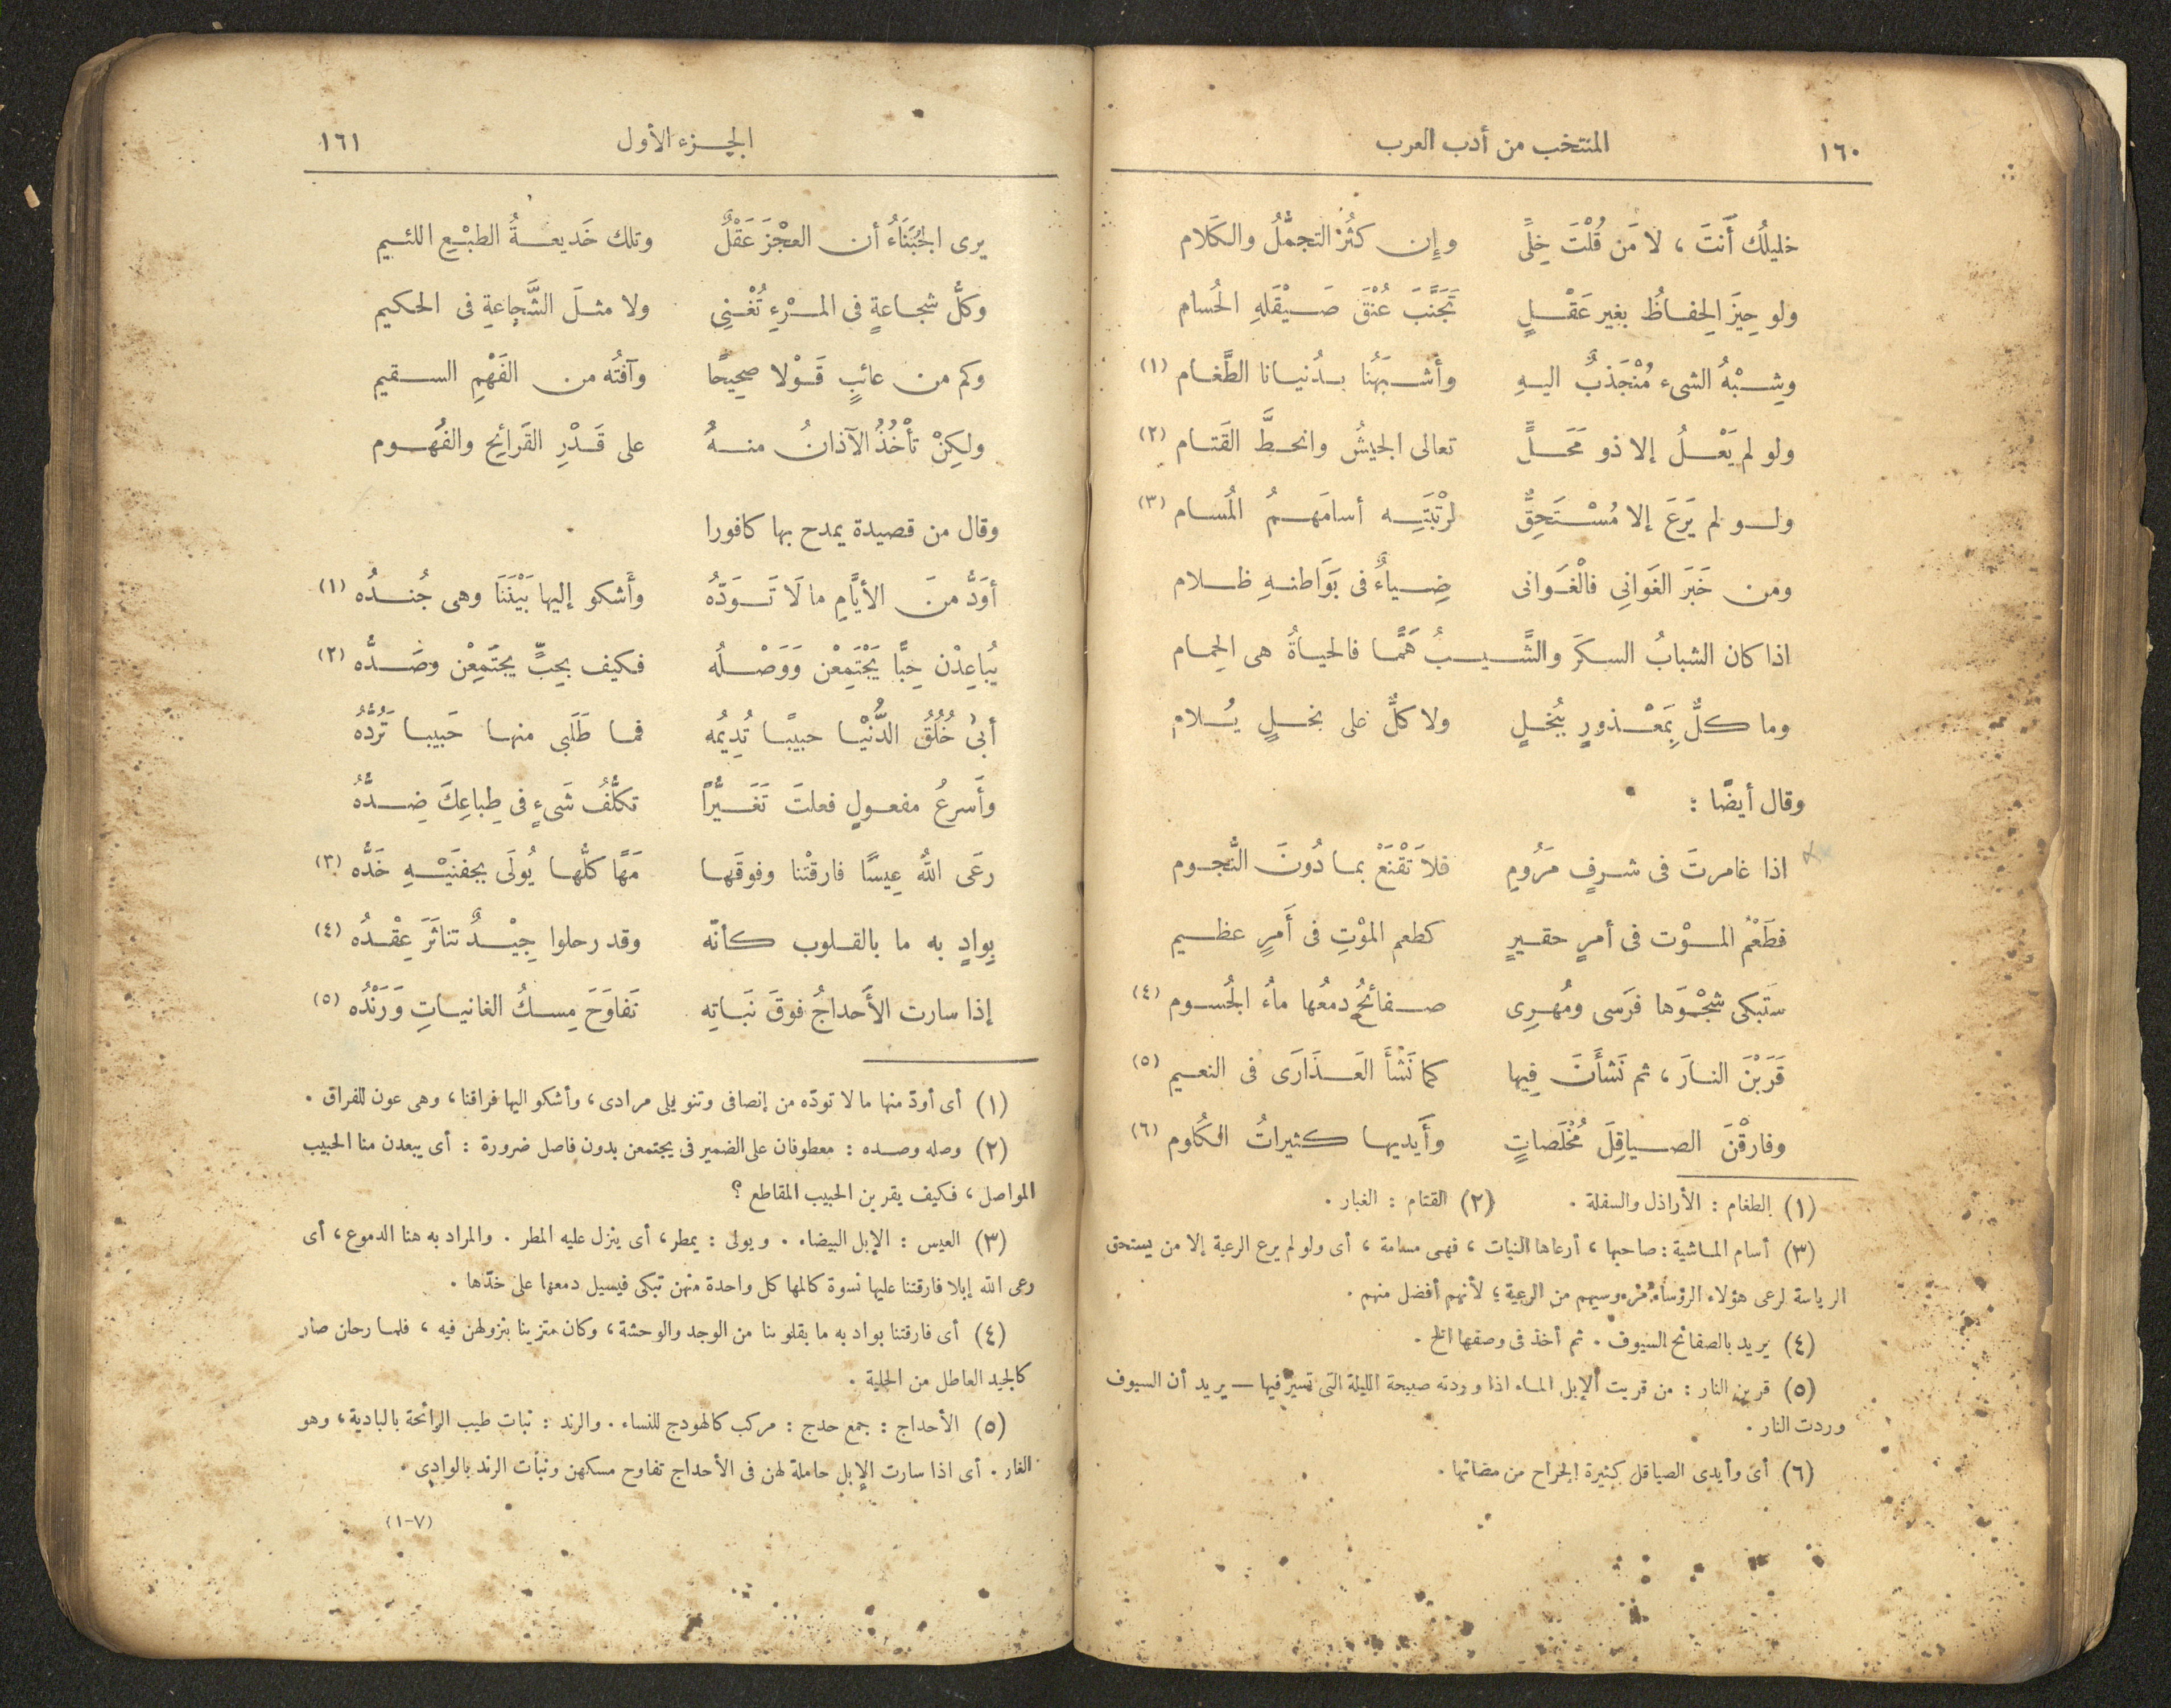 ١٦٠ المنتخب من أدب العرب
خليلُك أَنتَ ، لا مَن قُلْتَ خِلِّى وإِن كثُرَ التجمُّلُ والكَلام
ولو حِيزَ الِحفاظُ بغير عَقْلٍ تَجَنَّبَ عُنْقَ صَيْقَلِهِ الحُسام
وشِبْهُ الشىء مُنْجَذبٌ اليهِ وأشبَهُنا بدُنيانا الطَّغام (١)
ولو لم يَعْلُ إلا ذو مَحَلٍّ تعالى الجيشُ وانحطَّ القَتام (٢)
ولو لم يَرَعَ إلا مُسْتَحِقٌّ لرْتْبَتِه أسامَهمُ المُسام (٣)
ومن خَبَرَ الغَوانِى فالْغَوانى ضِياءٌ فى بَوَاطنهِ ظلام
اذا كان الشبابُ السكرَ والشَّيبُ هَمًّا فالحياةُ هى الحِمام
وما كلٌّ بِمَعْذورٍ بُبُخلٍ ولا كلٌّ على بخلٍ يُلام
وقال أيضًا :
اذا غامرتَ فى شرفٍ مَرُومِ فلاَ تَقْنَعْ بما دُونَ النُّجوم
فطَعْمُ المَوْت فى أمرٍ حقيرٍ كطعم الموْتِ فى أَمرٍ عظيم
ستَبكى شجْوَها فَرَسى ومُهرِى صفائحُ دمعُها ماءُ الجُسوم (٤)
قَرَبْنَ النارَ ، ثم نَشَأنَ فِيها كما نَشَأَ العَذَارَى فى النعيم (٥)
وفارقْنَ الصياقِلَ مُخْلَصاتٍ وأَيديها كثيراتُ الكُلوم (٦)
(١) الطغام : الأراذل والسفلة . (٢) القتام : الغبار .
(٣) أسام الماشية : صاحبها ، أرعاها النبات ، فهى مسامة ، أى ولو لم يرع الرعية إلا من يستحق
الرياسة لرعى هؤلاء الرؤساء مرءوسيهم من الرعية ؛ لأنهم أفضل منهم .
(٤) يريد بالصفائح السيوف . ثم أخذ فى وصفها الخ .
(٥) قربن النار : من قربت الإبل الماء اذا وردته صبيحة الليلة التى تسير فيها — يريد أن السيوف
وردت النار .
(٦) أى وأيدى الصياقل كثيرة الجراح من مضائها .
الجزء الأول ١٦١
يرى الجُبَنَاءُ أن العجْزَ عَقْلٌ وتلك خَديعةُ الطبْعِ اللئيم
وكلُّ شجاعةٍ فى المرْءِ تُغْنِى ولا مثلَ الشَّجاعةِ فى الحكيم
وكم من عائبٍ قَوْلا صحِيحًا وآفتُه من الفَهْمِ السقيم
ولكِنْ تأْخُذُ الآذانُ منهُ على قَدْرِ القَرائِحِ والفُهوم
وقال من قصيدة يمدح بها كافورا
أوَدُّ منَ الأيَّامِ ما لَا تَوَدّهُ وأَشكو إليها بَيْنَنَا وهى جُندُه (١)
يُباعِدْن حِبًّا يَجْتَمِعْن وَوَصْلُه فكيف بِحِبٍّ يجتَمِعْن وصَدُّه (٢)
أبَى خُلُقُ الدُّنْيَا حبيبًا تُدِيمُه فما طَلَبى منها حَبيبا تَرُدُّهُ
وأَسرعُ مفعولٍ فعلتَ تَغَيُّراً تكلُّفُ شَىءٍ فى طِباعِكَ ضِدُّهُ
رعَى اللهُ عِيسًا فارقتْنا وفوقَها مَهًا كلُّها يُولَى بجفنَيْهِ خَدُّه (٣)
بِوادٍ به ما بالقلوب كأنّه وقد رحلوا جِيْدٌ تناثَرَ عِقْدُه (٤)
إذا سارت الأَحداجُ فوقَ نَباتِه تَفاوَحَ مِسكُ الغانياتِ وَرَنْدُه (٥)
(١) أى أودّ منها ما لا تودّه من إنصافى وتنويلى مرادى ، وأشكو اليها فراقنا ، وهى عون للفراق .
(٢) وصله وصده : معطوفان على الضمير فى يجتمعن بدون فاصل ضرورة : أى يبعدن منا الحبيب
المواصل ، فكيف يقربن الحبيب المقاطع ؟
(٣) العيس : الإبل البيضاء . ويولى : يمطر ، أى ينزل عليه المطر . والمراد به هنا الدموع ، أى
رعى الله إبلا فارقتنا عليها نسوة كالمها كل واحدة منهن تبكى فيسيل دمعها على خدّها .
(٤) أى فارقتنا بواد به ما بقلوبنا من الوجد والوحشة ، وكان متزينا بنزولهن فيه ، فلما رحلن صار
كالجيد العاطل من الحلية .
(٥) الأحداج : جمع حدج : مركب كالهودج للنساء . والرند : نبات طيب الرائحة بالبادية ، وهو
الغار . أى اذا سارت الإبل حاملة لهن فى الأحداج تفاوح مسكهن ونبات الرند بالوادى .
(٧-١)